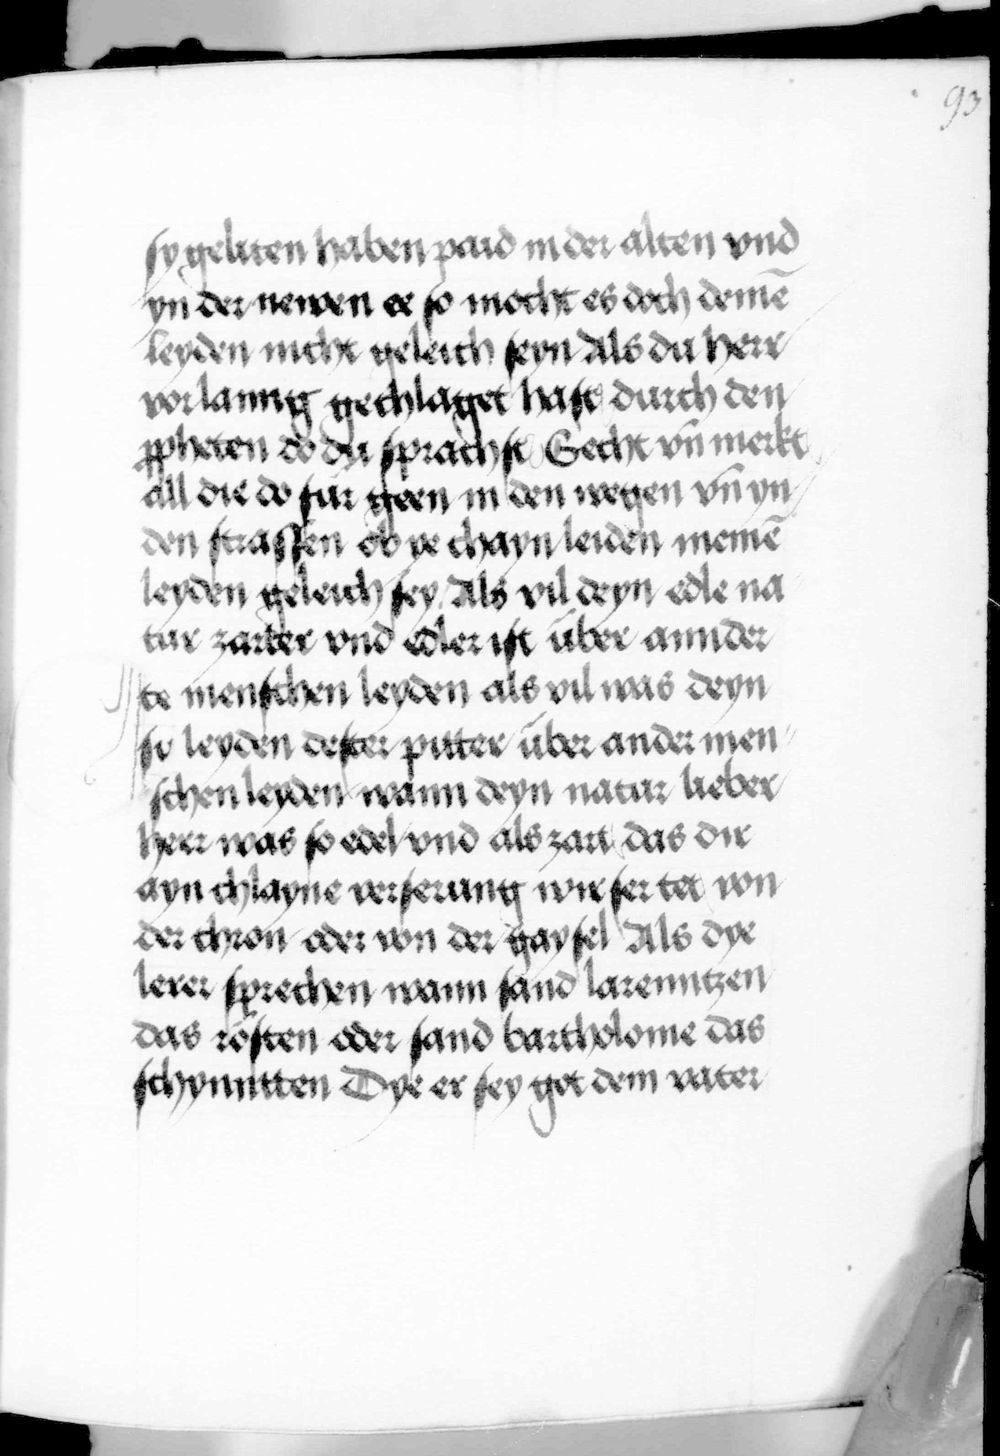 93
sy geliten haben paid in der alten vnd
yn der newen ee so mocht es doch deinē
leyden nicht geleich seyn Als du herr
vorlanng gechlaget hast durch den
ppheten do du sprachst Secht vn̄ merkt
all die do fur geen in den wegen vn̄ yn
den strassen ob ye chayn leiden meinē
leyden geleich sey Als vil deyn edle na
tur zarter vnd edler ist über annder
te menschen leyden als vil was deyn
so leyden dester pitter über ander men
schen leyden wann deyn natur lieber
herr was so edel vnd als zart das dir
ayn chlayne verserung wirser tet von
der chron oder von der gaysel Als dye
lerer sprechen wann sand larenntzen
das rösten oder sand bartholome das
schynntten Dye er sey got dem vater